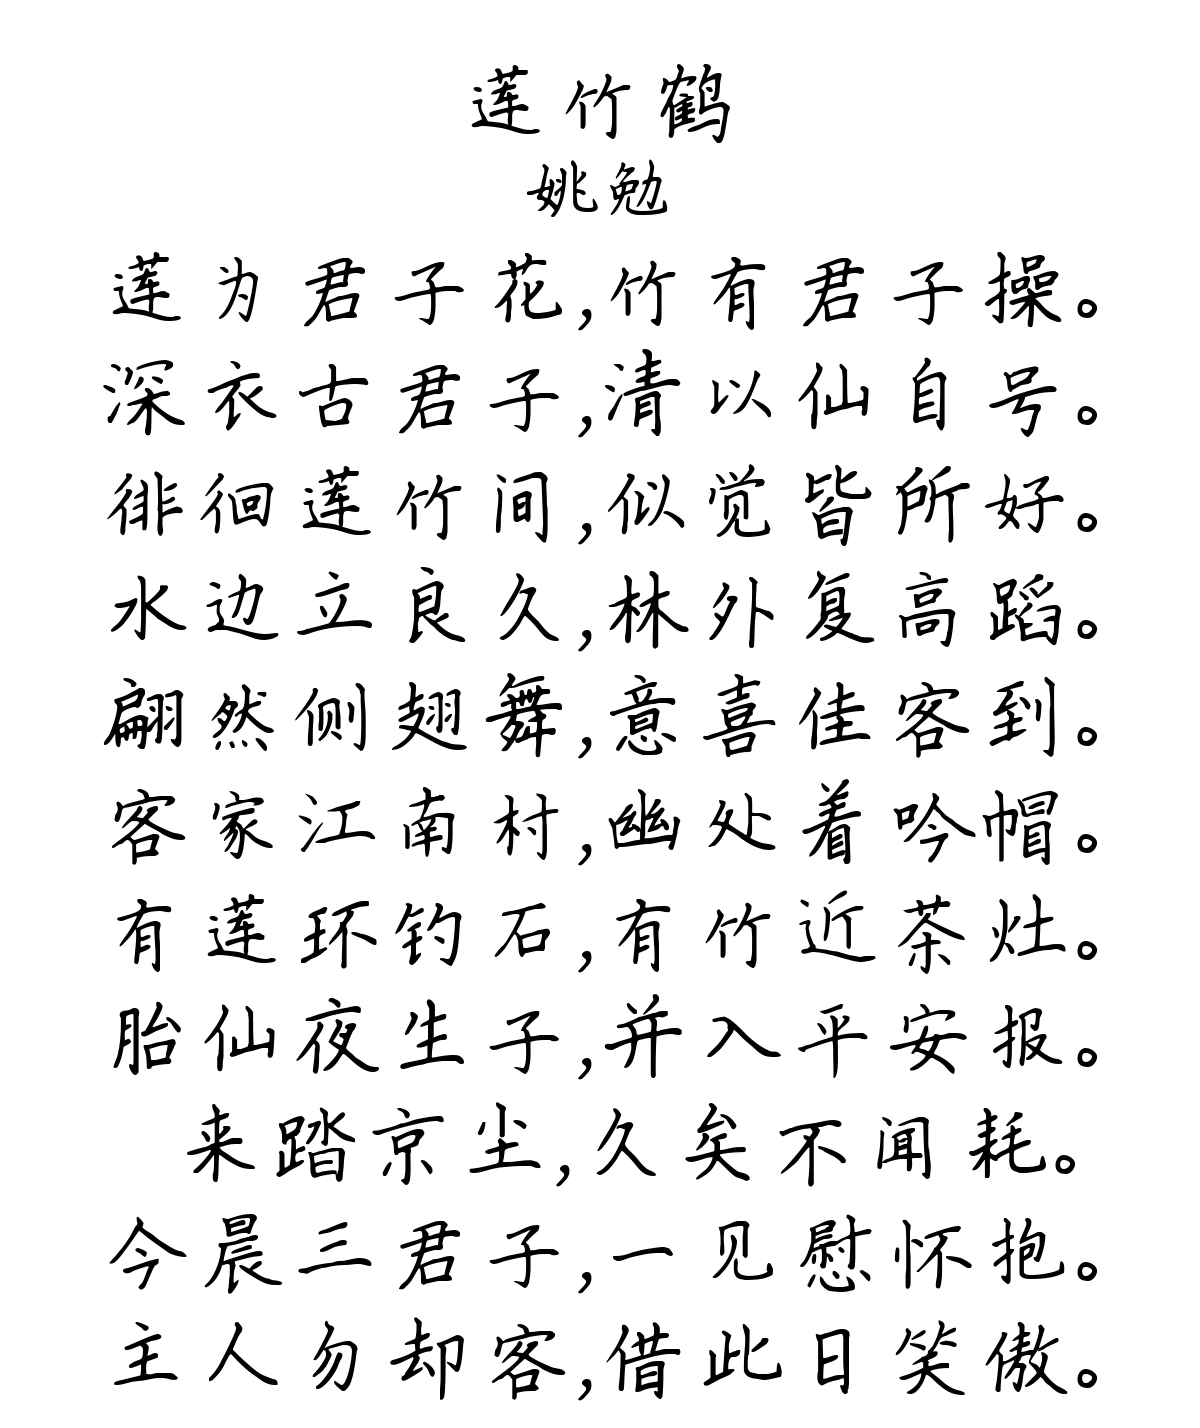 莲竹鹤
姚勉
莲为君子花,竹有君子操。
深衣古君子,清以仙自号。
徘徊莲竹间,似觉皆所好。
水边立良久,林外复高蹈。
翩然侧翅舞,意喜佳客到。
客家江南村,幽处着吟帽。
有莲环钓石,有竹近茶灶。
胎仙夜生子,并入平安报。
来踏京尘,久矣不闻耗。
今晨三君子,一见慰怀抱。
主人勿却客,借此日笑傲。